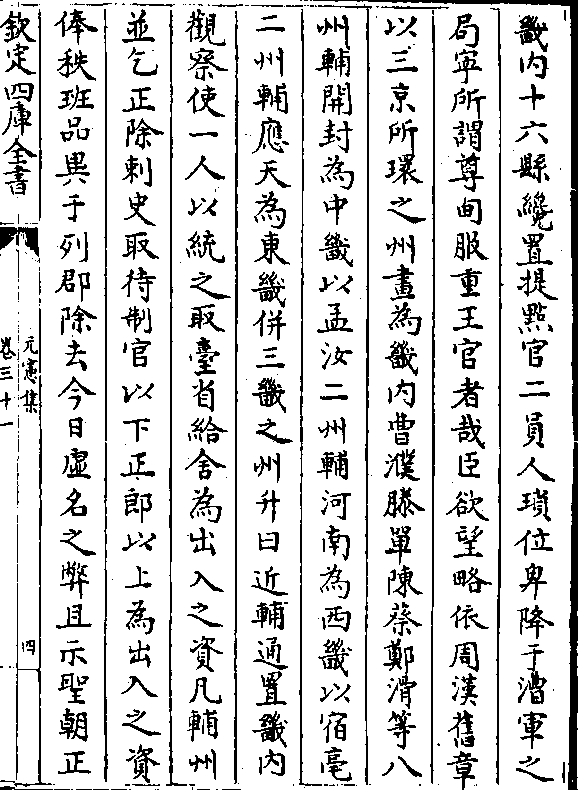 畿内十六縣纔置提㸃官二員人瑣位卑降于漕軍之
局寜所謂尊甸服重王官者哉臣欲望略依周漢舊章
以三京所環之州畫為畿内曹濮滕單陳蔡鄭滑等八
州輔開封為中畿以孟汝二州輔河南為西畿以宿亳
二州輔應天為東畿併三畿之州升曰近輔通置畿内
觀察使一人以統之取臺省給舍為出入之資凡輔州
並乞正除刺史取待制官以下正郎以上為出入之資
俸秩班品異于列郡除去今日虛名之弊且示聖朝正
欽定四庫全書
元憲集
卷三十一
四